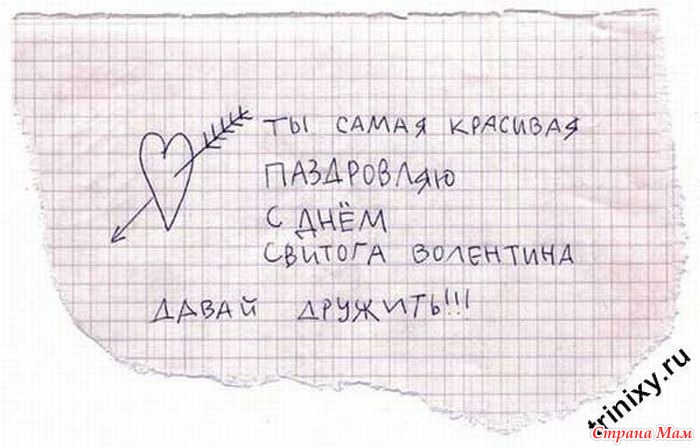 ТЫ САМАЯ КРАСИВАЯ
ПАЗДРОВЛЯЮ
С ДНЁМ
СВИТОГА ВОЛЕНТИНА
ДАВАЙ ДРУЖИТЬ!!!
trinixy.ru
Страна Мам